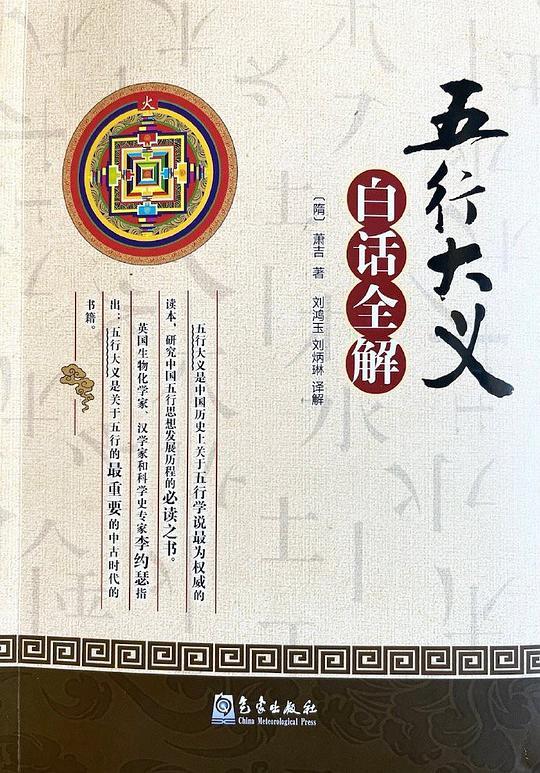 五行大义
白话全解
〔隋〕萧吉 著
刘鸿玉 刘炳琳 译解
火
五行大义是中国历史上关于五行学说最为权威的
读本，研究中国五行思想发展历程的必读之书。
英国生物化学家、汉学家和科学史专家李约瑟指
出：五行大义是关于五行的最重要的中古时代的
书籍。
气象出版社
China Meteorological Press